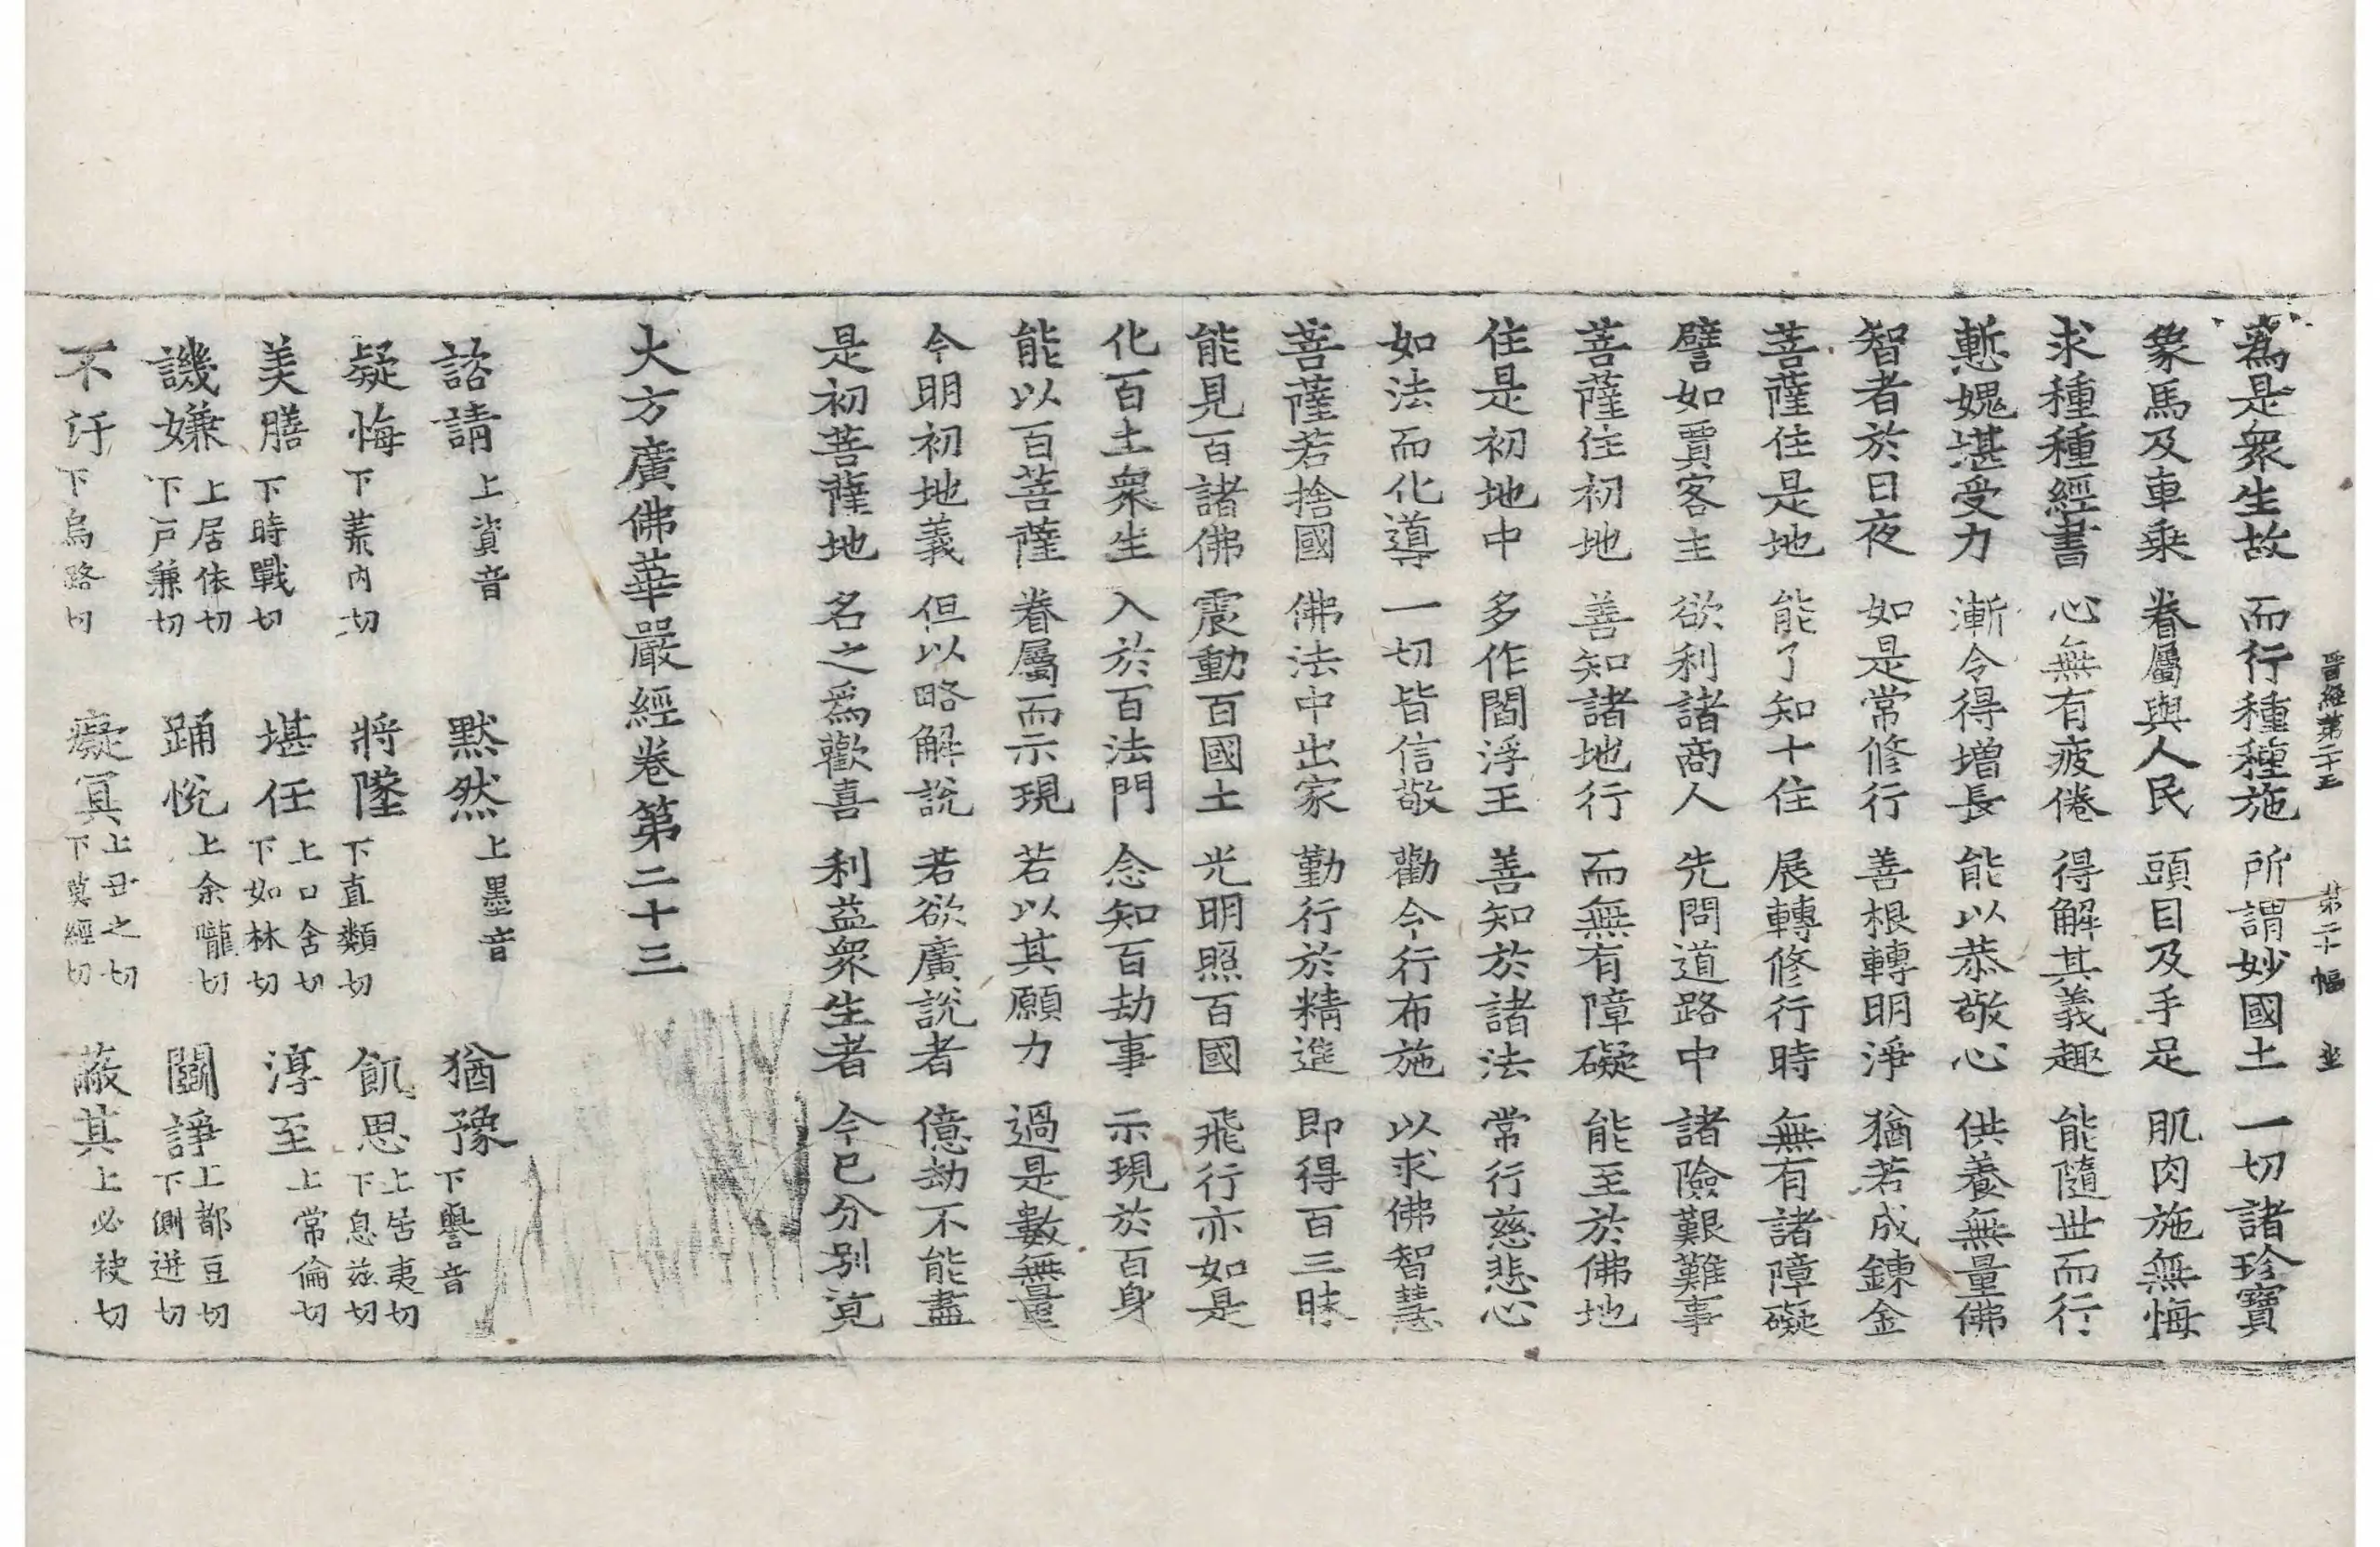 晉經第二十三 第二十幅 坐
爲是衆生故 而行種種施 所謂妙國土 一切諸珍寶
象馬及車乗 眷屬與人民 頭目及手足 肌肉施無悔
求種種經書 心無有疲倦 得解其義趣 能隨世而行
慙媿堪受力 漸令得增長 能以恭敬心 供養無量佛
智者於日夜 如是常修行 善根轉明淨 猶若成鍊金
菩薩住是地 能了知十住 展轉修行時 無有諸障礙
譬如賈客主 欲利諸商人 先問道路中 諸險艱難事
菩薩住初地 善知諸地行 而無有障礙 能至於佛地
住是初地中 多作閻浮王 善知於諸法 常行慈悲心
如法而化導 一切皆信敬 勸令行布施 以求佛智慧
菩薩若捨國 佛法中出家 勤行於精進 即得百三昧
能見百諸佛 震動百國土 光明照百國 飛行亦如是
化百土衆生 入於百法門 念知百劫事 示現於百身
能以百菩薩 眷屬而示現 若以其願力 過是數無量
今明初地義 但以略解說 若欲廣說者 億劫不能盡
是初菩薩地 名之爲歡喜 利益衆生者 今已分別竟
大方廣佛華嚴經卷第二十三
諮請上資音 默然上墨音 猶豫下譽音
疑悔下荒内切 將墜下直類切 飢思上居夷切下息兹切
美膳下時戰切 堪任上口含切下如林切 淳至上常倫切
譏嫌上居依切下戸兼切 踊悅上余隴切 鬬諍上都豆切下側迸切
不汙下烏路切 癡冥上丑之切下莫經切 蔽其上必袂切